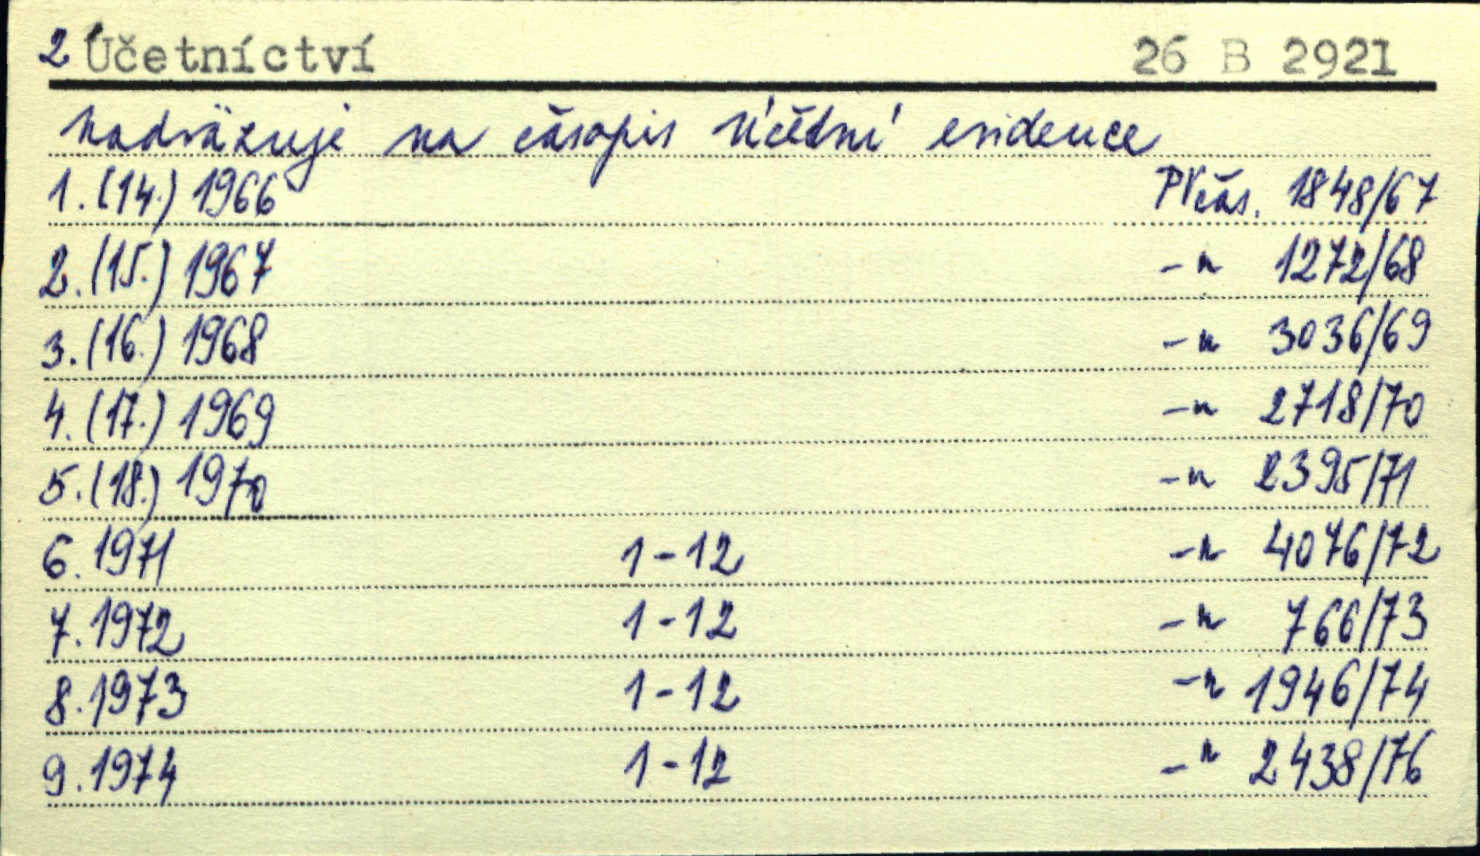 2 Účetníctví 26 B 2921
Nadväzuje na časopis Účetní evidence
1. (14.) 1966 PVčás. 1848/67
2. (15.) 1967 -"- 1272/68
3. (16.) 1968 -"- 3036/69
4. (17.) 1969 -"- 2718/70
5. (18.) 1970 -"- 2395/71
6. 1971 1-12 -"- 4076/72
7. 1972 1-12 -"- 766/73
8. 1973 1-12 -"- 1946/74
9. 1974 1-12 -"- 2438/76